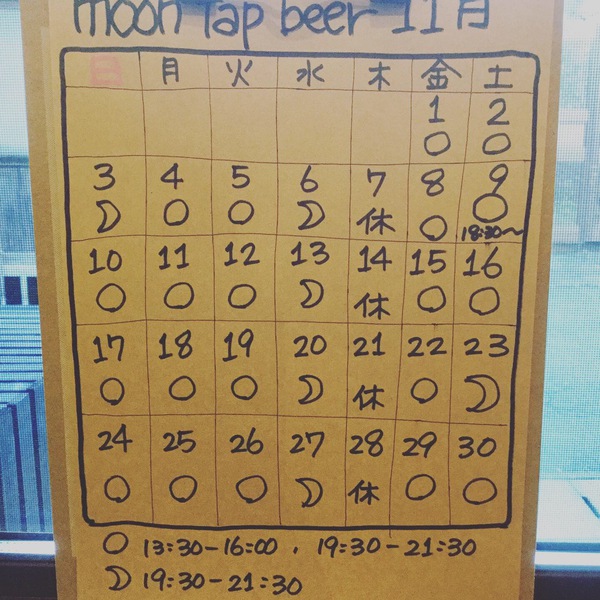 moon Tap beer 11月
日 月 火 水 木 金 土
1 2
○ ○
3 4 5 6 7 8 9
☽ ○ ○ ☽ 休 ○ ○
18:30〜
10 11 12 13 14 15 16
○ ○ ○ ☽ 休 ○ ○
17 18 19 20 21 22 23
○ ○ ○ ☽ 休 ○ ☽
24 25 26 27 28 29 30
○ ○ ○ ☽ 休 ○ ○
○ 13:30-16:00 . 19:30-21:30
☽ 19:30-21:30